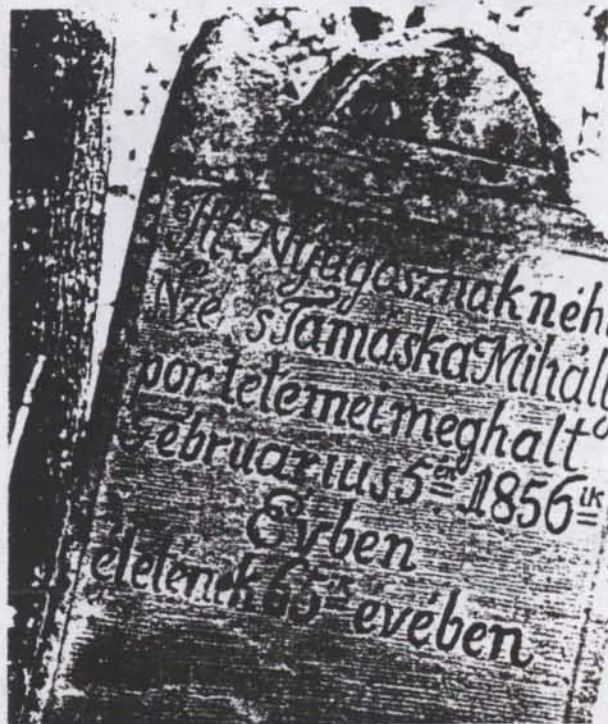 Itt Nyúgosznak néh
Nze s Tamáska Mihály
por tetemei meghalt
Februarius 5én 1856ik
Evben
életének 65ik évében